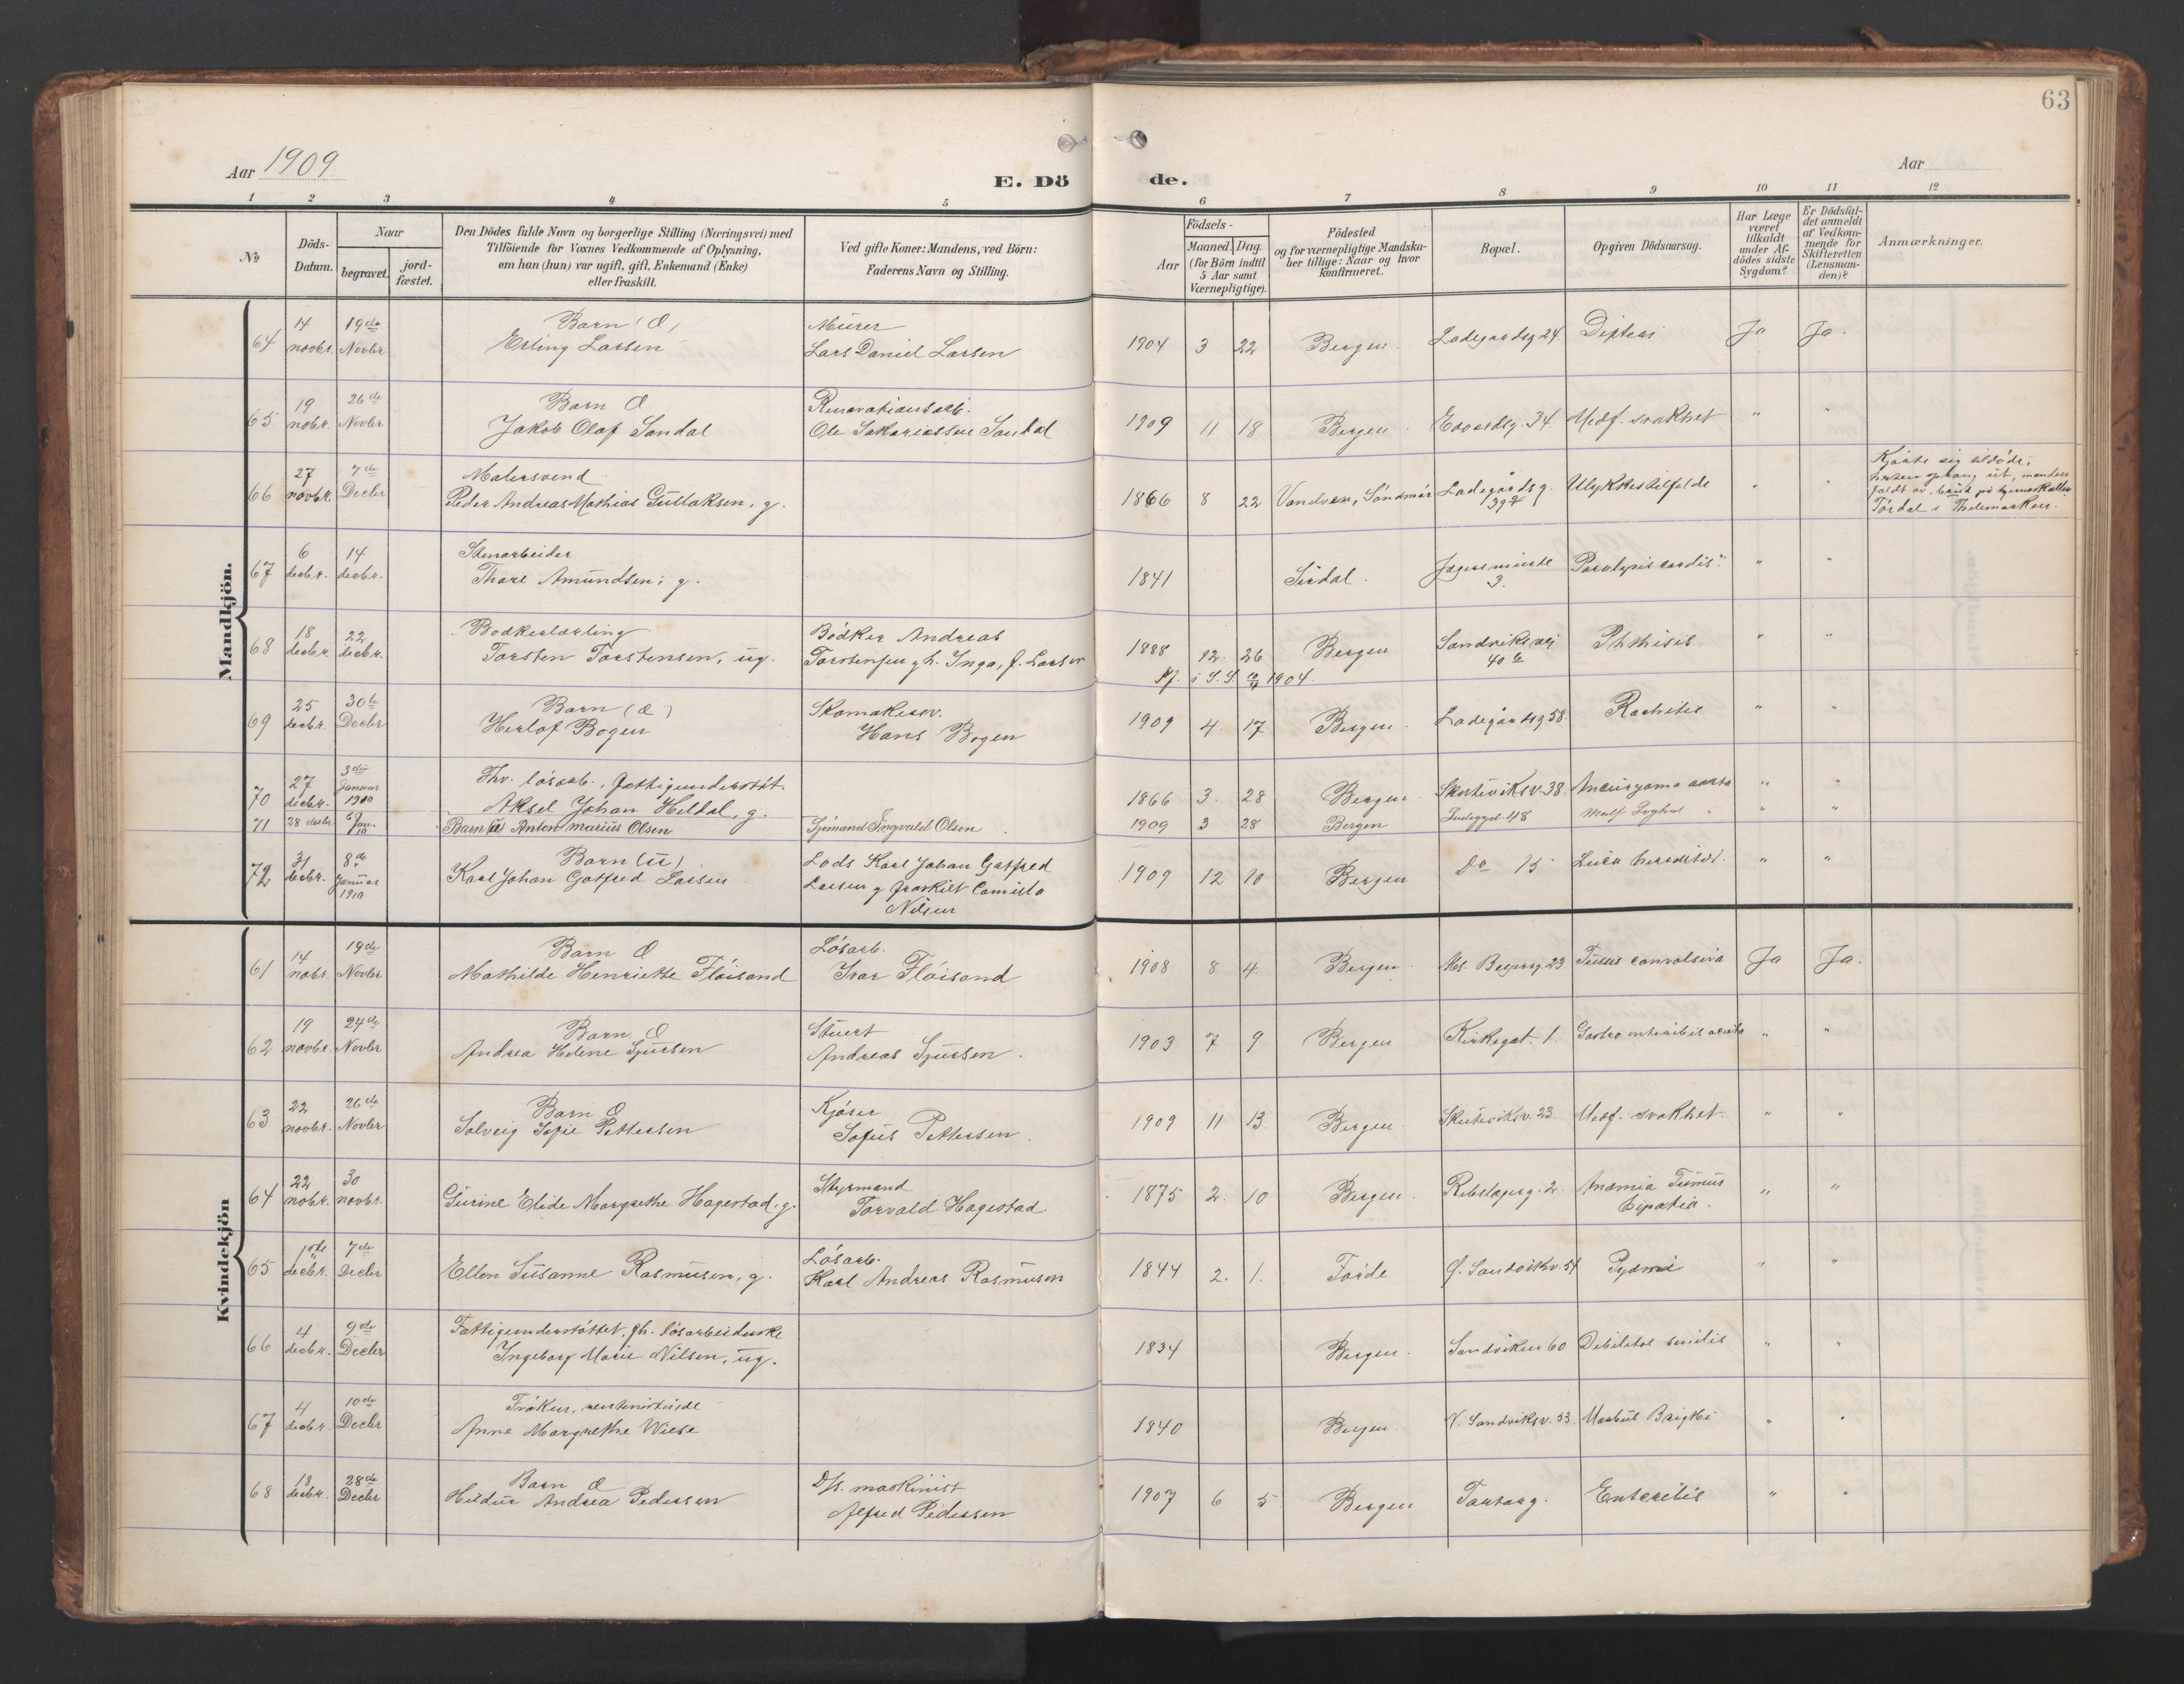 63
Aar 1909
E. Dö de.
Aar
1 2 3 4 5 6 7 8 9 10 11 12
No
Döds-Datum.
Naar
begravet.
jord-fæstet.
Den Dödes fulde Navn og borgerlige Stilling (Næringsvei) med
Tilföiende for Voxnes Vedkommende af Oplysning,
om han (hun) var ugift, gift, Enkemand (Enke)
eller fraskilt.
Ved gifte Koner: Mandens, ved Börn:
Faderens Navn og Stilling.
Födsels-
Aar
Maaned. Dag.
(for Börn indtil
5 Aar samt
Værnepligtige).
Födested
og for værnepligtige Mandskaber tillige: Naar og hvor
konfirmeret.
Bopæl.
Opgiven Dödsaarsag.
Har Læge
været
tilkaldt
under Afdödes sidste
Sygdom?
Er Dödsfaldet anmeldt
af Vedkommende for
Skifteretten
(Lensmanden)?
Anmærkninger.
Mandkjön.
64 14 novbr. 19de Novbr Barn Erling Larsen Murer Lars Daniel Larsen 1904 3 22 Bergen Ladegaardsg 24 Difteri Ja Ja.
65 19 nobr. 26de Novbr Barn Jakob Olaf Sandal Renovationsarb. Ole Sakariassen Sandal 1909 11 18 Bergen Edvardsg. 34 Medf. svakhet " "
66 27 novbr. 7de Decbr Malersvend Peder Andreas Mathias Gullaksen, g. 1866 8 22 Vandven, Söndmör Ladegårdsg. 39 Ulykkestilfelde " " Kjørte sig tildöde,
67 6 decbr. 14 decbr. Stenarbeider Thore Amundsen, g. 1841 Sirdal. Jægersminde 3. Paralysis cordis " "
68 18 decbr. 22 decbr. Bodkerlærling Torsten Torstensen, ug. Bödker Andreas Torstensen g h. Inga, f. Larsen 1888 12. 26 Bergen Sandviksvei 40 Phthisis " "
1904.
69 25 decbr. 30te Decbr Barn Herlof Bogen Skomakersv. Hans Bogen 1909 4. 17 Bergen. Ladegårdsg 58. Rachitis " "
70 27 decbr. 3die Januar 1910 Fhv. lösarb., fattigunderstöt. Aksel Johan Heldal, g. 1866 3. 28 Bergen. Skuteviksv. 38. Aneurysma aorta " "
71 28 decbr 6/10 Jan. Barn Anton Marius Olsen Sjömand Ingvald Olsen 1909 3 28 Bergen Ladeggd. 48 " "
72 31 decbr. 8de Januar 1910 Barn (u) Karl Johan Gotfred Larsen Lods Karl Johan Gotfred Larsen g fraskilt Camilla Nilsen 1909 12 10 Bergen Do 15 Lues heredität. " "
Kvindekjön
61 14 nobr. 19de Novbr Barn Mathilde Henriette Flöisand Lösarb. Ivar Flöisand 1908 8 4. Bergen. 23 Tussis convulsiva Ja Ja.
62 19 novbr. 24de Novbr Barn Andrea Helene Sjursen Stuert Andreas Sjursen. 1903 7 9 Bergen Kirkegat. 1. Gastro enteritis acuta " "
63 22 novbr. 26de Novbr Barn Solveig Sofie Pettersen Kjöser Sofus Pettersen. 1909 11 13. Bergen Skuteviksv. 23. Medf. svakhet. " "
64 22 nobr. 30 novbr. Gurine Elide Margrethe Hagestad, g. Styrmand Torvald Hagestad. 1875 2. 10 Bergen. Rebslagerg. 2. Anæmia Tumus " "
65 1ste decbr. 7de Decbr Ellen Susanne Rasmusen, g. Lösarb. Karl Andreas Rasmusen 1844 2. 1. Förde Sandviksv. 54 Pyämi " "
66 4 decbr. 9de Decbr Fattigunderstöttet, fh. lösarbeiderske Ingeborg Marie Nilsen, ug. 1834 Bergen. Sandviken 60 Debilitas senilis " "
67 4 decbr. 10de Decbr Fröken, rentenistinde Anne Margrethe Wiese 1840 Bergen. N. Sandviksv. 53. Morbus Brigthi " "
68 18 decbr. 28de Decbr Barn Hildur Andrea Pedersen D/s. maskinist Alfred Pedersen 1907 6 5 Bergen Enteritis " "